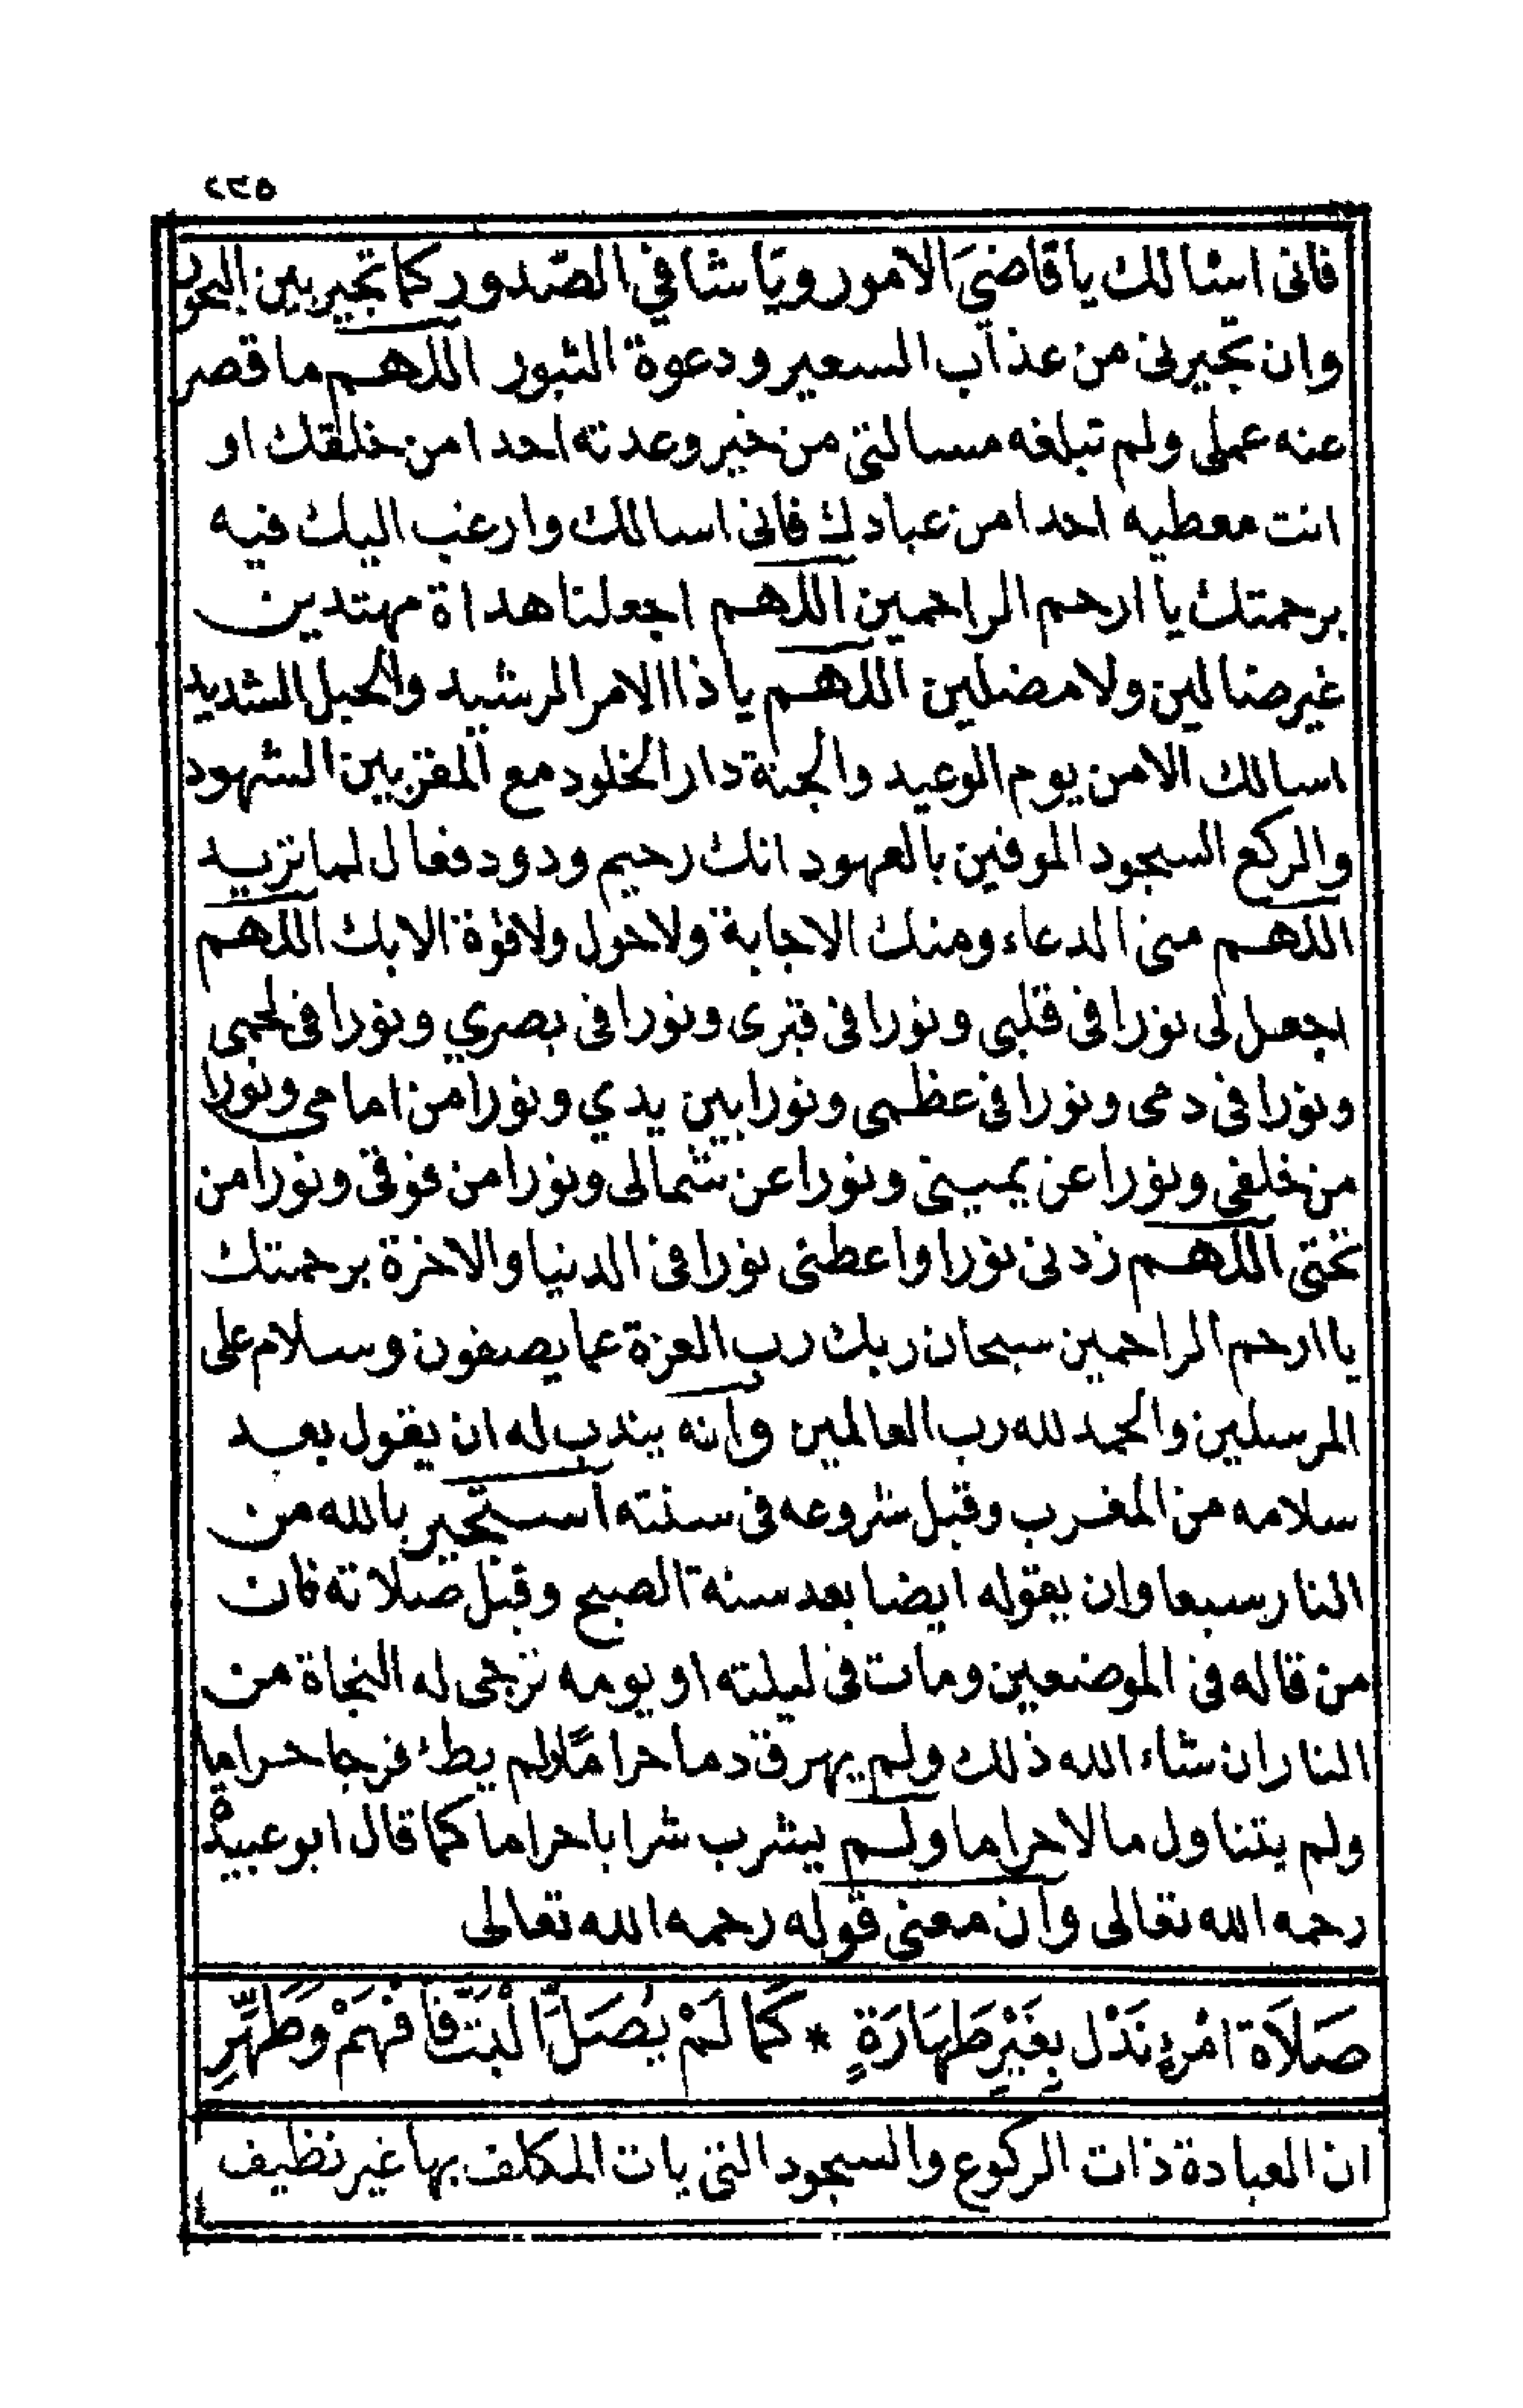 ٢٢٥
فانى اسالك يا قاضيَ الامور ويَا شافي الصّدور كما تجير بين البحور
وان تجيرنى من عذاب السعير ودعوة الثبور اللهم ما قصر
عنه عملى ولم تبلغه مسالتى من خير وعدته احدا من خلقك او
انت معطيه احدا من عبادك فانى اسالك وارغب اليك فيه
برحمتك يا ارحم الراحمين اللهم اجعلنا هداة مهتدين
غير ضالين ولا مضلين اللهم يا ذا الامر الرشيد والحبل الشديد
اسالك الامن يوم الوعيد والجنة دار الخلود مع المقربين الشهود
والركع السجود الموفين بالعهود انك رحيم ودود فعال لما تريد
اللهم منى الدعاء ومنك الاجابة ولا حول ولا قوة الا بك اللهم
اجعل لى نورا فى قلبى ونورا فى قبرى ونورا فى بصري ونورا فى لحمى
ونورا فى دمى ونورا فى عظمى ونورا بين يدي ونورا من امامى ونورا
من خلفى ونورا عن يمينى ونورا عن شمالى ونورا من فوقى ونورا من
تحتى اللهم زدنى نورا واعطنى نورا فى الدنيا والاخرة برحمتك
يا ارحم الراحمين سبحان ربك رب العزة عما يصفون وسلام على
المرسلين والحمد لله رب العالمين وانه يندب له ان يقول بعد
سلامه من المغرب وقبل شروعه فى سنته استجير بالله من
النار سبعا وان يقوله ايضا بعد سنة الصبح وقبل صلاته فان
من قاله فى الموضعين ومات فى ليلته او يومه ترجى له النجاة من
النار ان شاء الله ذلك ولم يهرق دما حرامًا ولم يطئ فرجا حراما
ولم يتناول مالا حراما ولم يشرب شرابا حراما كما قال ابو عبيدة
رحمه الله تعالى وان معنى قوله رحمه الله تعالى
صَلَاَة امْرِءٍ نَذْل بِغَيْرِ طَهَارَةٍ * كَمَا لَمْ يُصَلَّ الْبَتَّ فَافْهَمْ وَطَهِّرِ
ان العبادة ذات الركوع والسجود التى يات المكلف بها غير نظيف